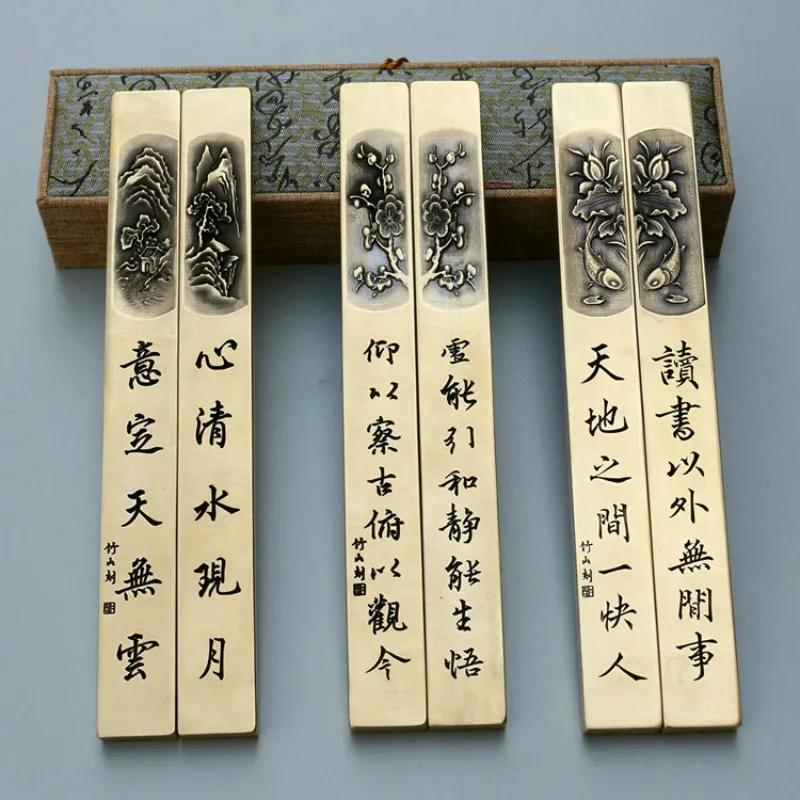 讀書以外無閒事
天地之間一快人
竹山刻
虛能引和靜能生悟
仰以察古俯以觀今
竹山刻
心清水現月
意定天無雲
竹山刻